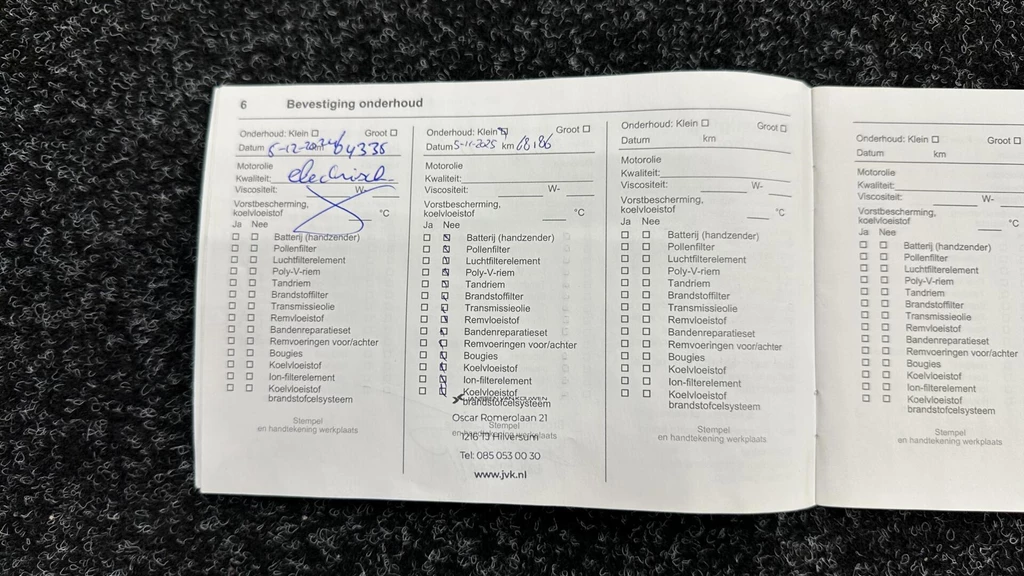 6 Bevestiging onderhoud
Onderhoud: Klein ☐ Groot ☐
Datum 5-12-2024 64336
Motorolie
Kwaliteit: electrisch
Viscositeit: W-
Vorstbescherming,
koelvloeistof °C
Ja Nee
Batterij (handzender)
Pollenfilter
Luchtfilterelement
Poly-V-riem
Tandriem
Brandstoffilter
Transmissieolie
Remvloeistof
Bandenreparatieset
Remvoeringen voor/achter
Bougies
Koelvloeistof
Ion-filterelement
Koelvloeistof
brandstofcelsysteem
Stempel
en handtekening werkplaats
Onderhoud: Klein Groot ☐
Datum 5-11-2025 km 68186
Motorolie
Kwaliteit:
Viscositeit: W-
Vorstbescherming,
koelvloeistof °C
Ja Nee
Batterij (handzender)
Pollenfilter
Luchtfilterelement
Poly-V-riem
Tandriem
Brandstoffilter
Transmissieolie
Remvloeistof
Bandenreparatieset
Remvoeringen voor/achter
Bougies
Koelvloeistof
Ion-filterelement
Koelvloeistof
brandstofcelsysteem
Oscar Romerolaan 21
Stempel
en handtekening werkplaats
1216 TJ Hilversum
Tel: 085 053 00 30
www.jvk.nl
Onderhoud: Klein ☐ Groot ☐
Datum km
Motorolie
Kwaliteit:
Viscositeit: W-
Vorstbescherming,
koelvloeistof °C
Ja Nee
Batterij (handzender)
Pollenfilter
Luchtfilterelement
Poly-V-riem
Tandriem
Brandstoffilter
Transmissieolie
Remvloeistof
Bandenreparatieset
Remvoeringen voor/achter
Bougies
Koelvloeistof
Ion-filterelement
Koelvloeistof
brandstofcelsysteem
Stempel
en handtekening werkplaats
Onderhoud: Klein ☐ Groot ☐
Datum km
Motorolie
Kwaliteit:
Viscositeit: W-
Vorstbescherming,
koelvloeistof °C
Ja Nee
Batterij (handzender)
Pollenfilter
Luchtfilterelement
Poly-V-riem
Tandriem
Brandstoffilter
Transmissieolie
Remvloeistof
Bandenreparatieset
Remvoeringen voor/achter
Bougies
Koelvloeistof
Ion-filterelement
Koelvloeistof
brandstofcelsysteem
Stempel
en handtekening werkplaats